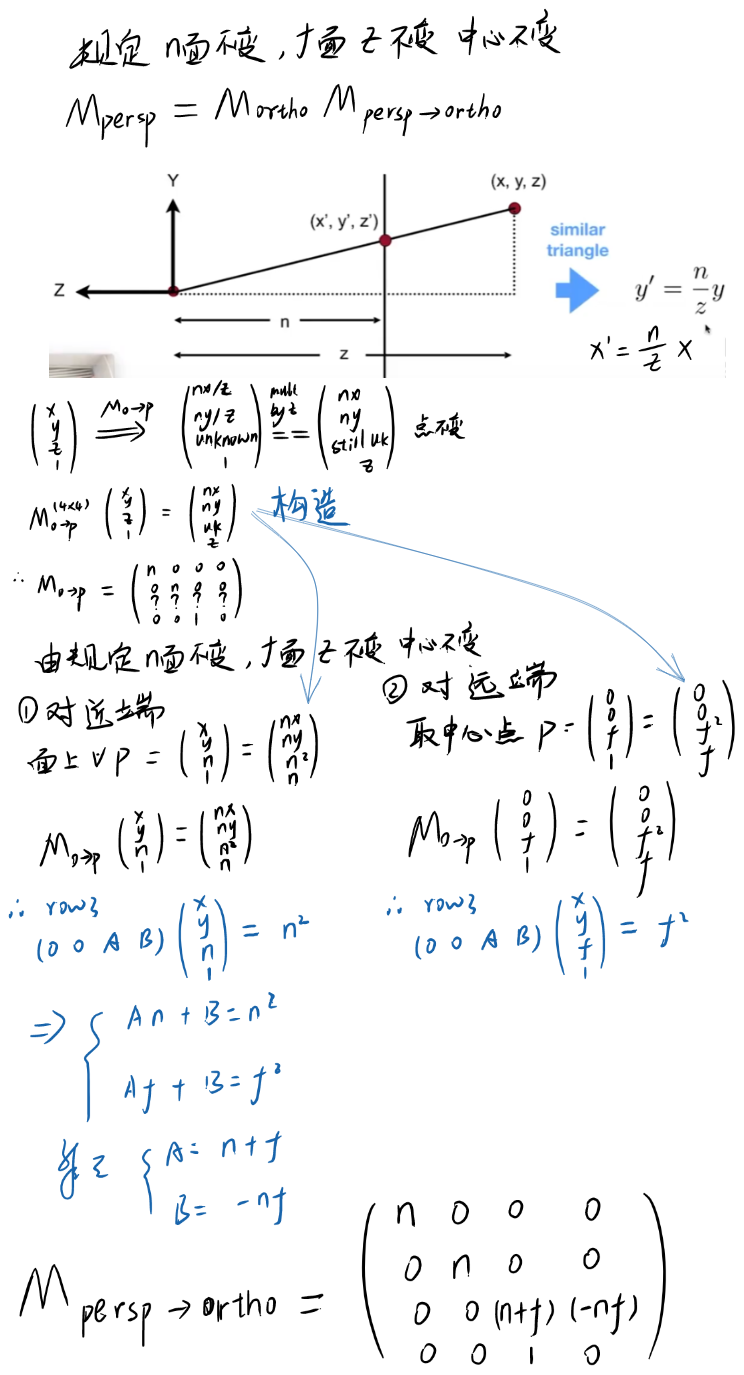 规定 n面不变，f面 z 不变 中心不变
M_persp = M_ortho M_persp→ortho
Y
(x, y, z)
(x', y', z')
similar
triangle
Z
y' = n/z y
n
x' = n/z x
z
(x y z 1) M_o→p ⟹ (nx/z ny/z unknown 1) mult by z == (nx ny still uk z) 点不变
M_o→p^(4×4) (x y z 1) = (nx ny uk z) 构造
∴ M_o→p = (n 0 0 0 / 0 n 0 0 / ? ? ? ? / 0 0 1 0)
由规定 n面不变，f面 z 不变 中心不变
① 对近端
面上 ∀ P = (x y n 1) = (nx ny n² n)
M_o→p (x y n 1) = (nx ny n² n)
∴ row3
(0 0 A B) (x y n 1) = n²
② 对远端
取中心点 P = (0 0 f 1) = (0 0 f² f)
M_o→p (0 0 f 1) = (0 0 f² f)
∴ row3
(0 0 A B) (x y f 1) = f²
⇒ { An + B = n²
Af + B = f²
{ A = n + f
B = -nf
M_persp→ortho = (n 0 0 0 / 0 n 0 0 / 0 0 (n+f) (-nf) / 0 0 1 0)